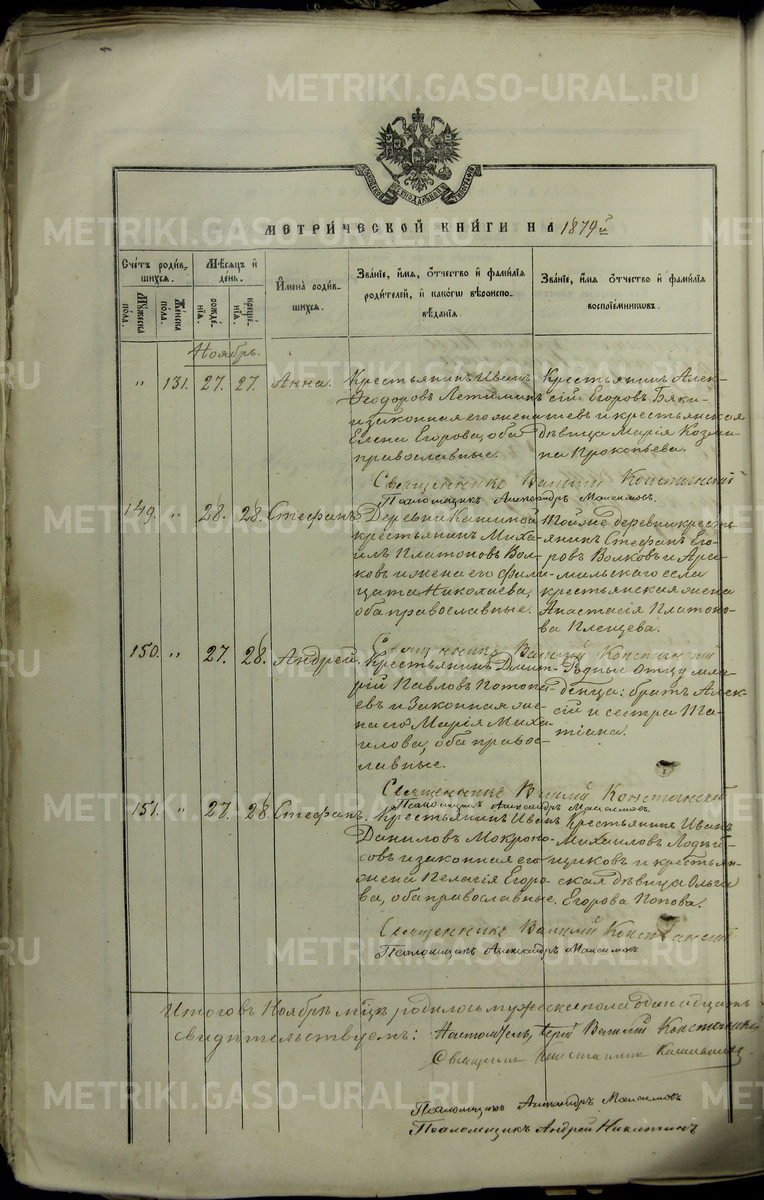 METRIKI.GASO-URAL.RU
МЕТРИ́ЧЕСКОЙ КНИ́ГИ НА 1879й
Сче́тъ роди́в-
шихся.
Му́жеска пола.
Же́нска пола.
Мѣ́сяцъ и҆ день.
рожде́-
нїѧ.
креще́-
нїѧ.
И҆мена̀ роди́в-
шихся.
Зва́нїе, и҆́мѧ, ѻ҆́тчество и҆ фами́лїѧ
роди́телей, и҆ како́гѡ вѣроиспо-
вѣ́данїѧ.
Зва́нїе, и҆́мѧ ѻ҆́тчество и҆ фами́лїѧ
воспрїе́мниковъ.
Ноябрь.
" 131. 27. 27. Анна.
Крестьянинъ Иванъ
Ѳеодоровъ Летиминъ
и законная его жена
Елена Егорова, оба
православные.
Крестьянинъ Алек-
сій Егоровъ Бяки-
шевъ и крестьянская
дѣвица Марія Козми-
на Прокопьева.
Священникъ Василій Констанскій
Псаломщикъ Александръ Максимовъ.
149. " 28. 28. Стефанъ.
Деревни Кашиной
крестьянинъ Миха-
илъ Платоновъ Вол-
ковъ и жена его Фили-
цата Николаева,
оба православные.
Тойже деревни кресть-
янинъ Стефанъ Его-
ровъ Волковъ и Ара-
мильскаго села
крестьянская жена
Анастасія Платоно-
ва Пленцева.
Священникъ Василій Констанскій
150. " 27. 28. Андрей.
Крестьянинъ Димит-
рій Павловъ Потопа-
евъ и законная же-
на его Марія Миха-
илова, оба правос-
лавные.
Родные отцу мла-
денца: братъ Алек-
сій и сестра Та-
тіана.
Священникъ Василій Констанскій
Псаломщикъ Александръ Максимовъ
151. " 27. 28. Стефанъ.
Крестьянинъ Иванъ
Даниловъ Мокроно-
совъ и законная его
жена Пелагія Егоро-
ва, оба православные.
Крестьянинъ Иванъ
Михаиловъ Лодѣй-
щиковъ и крестьян-
ская дѣвица Ольга
Егорова Попова.
Священникъ Василій Констанскій
Псаломщикъ Александръ Максимовъ
Итого въ Ноябрѣ м͠цѣ родилось мужеска пола одинадцать
свидѣтельствуемъ: Настоятель, Іерей Василій Констанскій
Священникъ
Псаломщикъ Александръ Максимовъ
Псаломщикъ Андрей Никитинъ